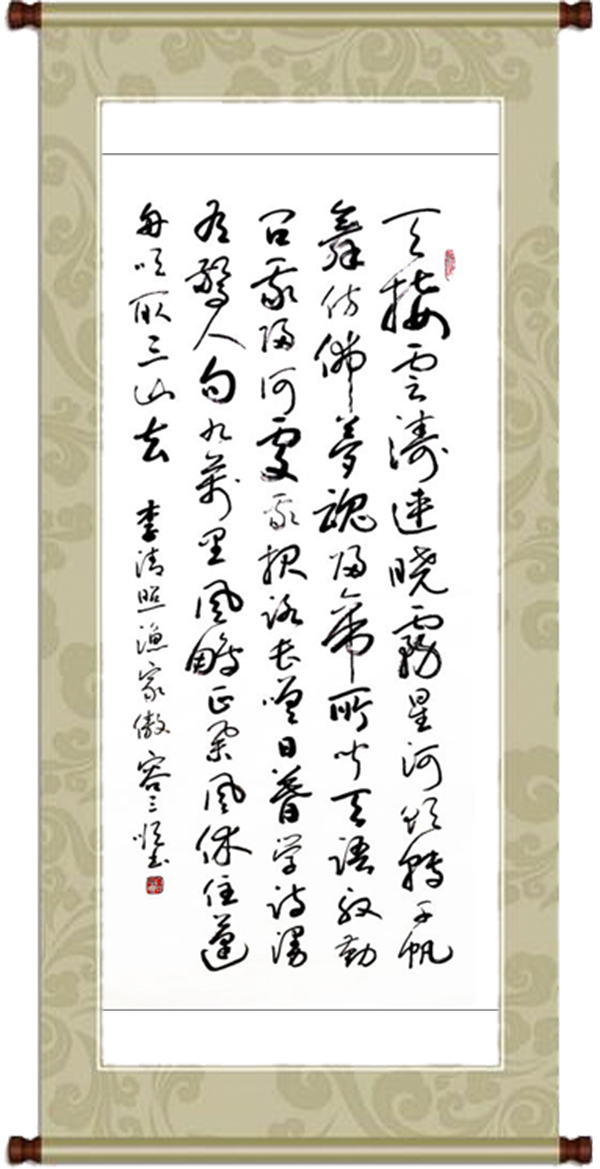 天接雲濤連曉霧星河欲轉千帆
舞仿佛夢魂歸帝所聞天語殷勤
問我歸何處我報路長嗟日暮學詩漫
有驚人句九萬里風鵬正舉風休住蓬
舟吹取三山去 李清照漁家傲